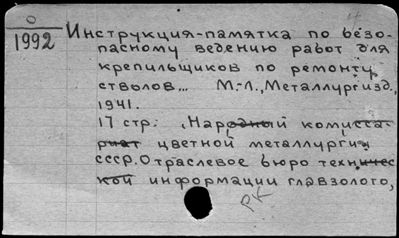 О
1992
Инструкция-памятка по безо-
пасному ведению работ для
крепильщиков по ремонту
стволов... М.-Л., Металлургизд.,
1941.
17 стр. Народный комисса-
риат цветной металлургии
СССР. Отраслевое бюро техничес-
кой информации главзолото,
РК